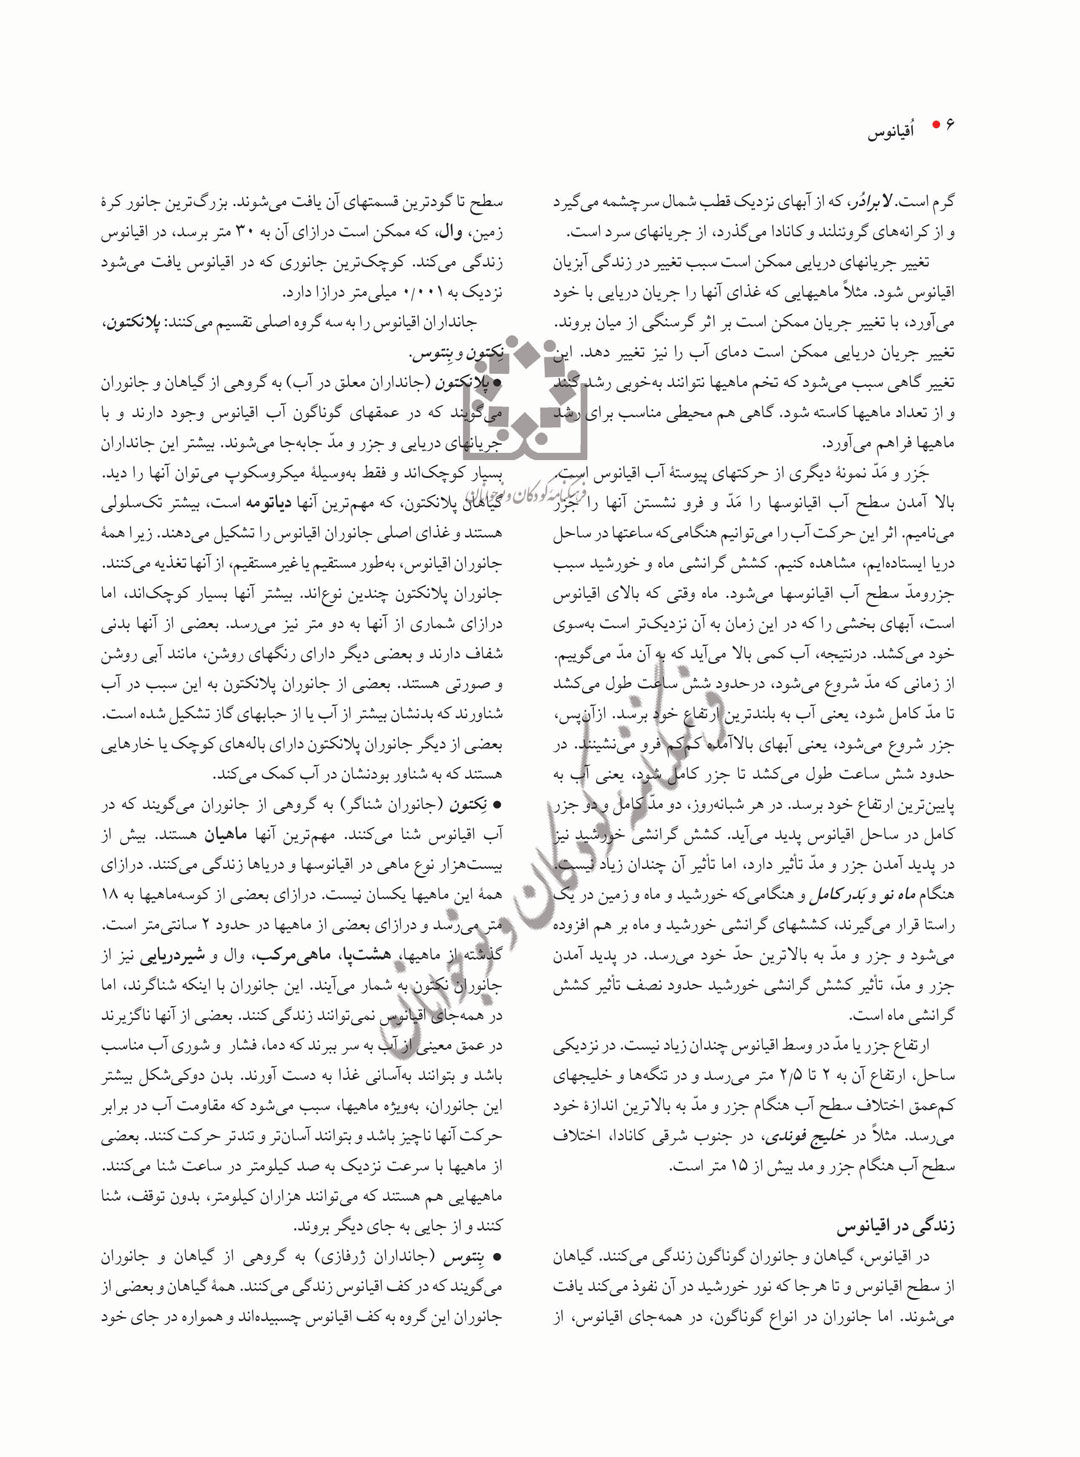 ۶ • اُقیانوس
گرم است. لابرادُر، که از آبهای نزدیک قطب شمال سرچشمه می‌گیرد
و از کرانه‌های گروئنلند و کانادا می‌گذرد، از جریانهای سرد است.
تغییر جریانهای دریایی ممکن است سبب تغییر در زندگی آبزیان
اقیانوس شود. مثلاً ماهیهایی که غذای آنها را جریان دریایی با خود
می‌آورد، با تغییر جریان ممکن است بر اثر گرسنگی از میان بروند.
تغییر جریان دریایی ممکن است دمای آب را نیز تغییر دهد. این
تغییر گاهی سبب می‌شود که تخم ماهیها نتوانند به‌خوبی رشد کنند
و از تعداد ماهیها کاسته شود. گاهی هم محیطی مناسب برای رشد
ماهیها فراهم می‌آورد.
جَزر و مَدّ نمونهٔ دیگری از حرکتهای پیوستهٔ آب اقیانوس است.
بالا آمدن سطح آب اقیانوسها را مَدّ و فرو نشستن آنها را جزر
می‌نامیم. اثر این حرکت آب را می‌توانیم هنگامی‌که ساعتها در ساحل
دریا ایستاده‌ایم، مشاهده کنیم. کشش گرانشی ماه و خورشید سبب
جزرومدّ سطح آب اقیانوسها می‌شود. ماه وقتی که بالای اقیانوس
است، آبهای بخشی را که در این زمان به آن نزدیک‌تر است به‌سوی
خود می‌کشد. درنتیجه، آب کمی بالا می‌آید که به آن مدّ می‌گوییم.
از زمانی که مدّ شروع می‌شود، درحدود شش ساعت طول می‌کشد
تا مدّ کامل شود، یعنی آب به بلندترین ارتفاع خود برسد. ازآن‌پس،
جزر شروع می‌شود، یعنی آبهای بالاآمده کم‌کم فرو می‌نشینند. در
حدود شش ساعت طول می‌کشد تا جزر کامل شود، یعنی آب به
پایین‌ترین ارتفاع خود برسد. در هر شبانه‌روز، دو مدّ کامل و دو جزر
کامل در ساحل اقیانوس پدید می‌آید. کشش گرانشی خورشید نیز
در پدید آمدن جزر و مدّ تأثیر دارد، اما تأثیر آن چندان زیاد نیست.
هنگام ماه نو و بَدر کامل و هنگامی‌که خورشید و ماه و زمین در یک
راستا قرار می‌گیرند، کششهای گرانشی خورشید و ماه بر هم افزوده
می‌شود و جزر و مدّ به بالاترین حدّ خود می‌رسد. در پدید آمدن
جزر و مدّ، تأثیر کشش گرانشی خورشید حدود نصف تأثیر کشش
گرانشی ماه است.
ارتفاع جزر یا مدّ در وسط اقیانوس چندان زیاد نیست. در نزدیکی
ساحل، ارتفاع آن به ۲ تا ۲/۵ متر می‌رسد و در تنگه‌ها و خلیجهای
کم‌عمق اختلاف سطح آب هنگام جزر و مدّ به بالاترین اندازهٔ خود
می‌رسد. مثلاً در خلیج فوندی، در جنوب شرقی کانادا، اختلاف
سطح آب هنگام جزر و مد بیش از ۱۵ متر است.
زندگی در اقیانوس
در اقیانوس، گیاهان و جانوران گوناگون زندگی می‌کنند. گیاهان
از سطح اقیانوس و تا هرجا که نور خورشید در آن نفوذ می‌کند یافت
می‌شوند. اما جانوران در انواع گوناگون، در همه‌جای اقیانوس، از
سطح تا گودترین قسمتهای آن یافت می‌شوند. بزرگ‌ترین جانور کرهٔ
زمین، وال، که ممکن است درازای آن به ۳۰ متر برسد، در اقیانوس
زندگی می‌کند. کوچک‌ترین جانوری که در اقیانوس یافت می‌شود
نزدیک به ۰/۰۰۱ میلی‌متر درازا دارد.
جانداران اقیانوس را به سه گروه اصلی تقسیم می‌کنند: پلانکتون،
نِکتون و بِنتوس.
• پلانکتون (جانداران معلق در آب) به گروهی از گیاهان و جانوران
می‌گویند که در عمقهای گوناگون آب اقیانوس وجود دارند و با
جریانهای دریایی و جزر و مدّ جابه‌جا می‌شوند. بیشتر این جانداران
بسیار کوچک‌اند و فقط به‌وسیلهٔ میکروسکوپ می‌توان آنها را دید.
گیاهان پلانکتون، که مهم‌ترین آنها دیاتومه است، بیشتر تک‌سلولی
هستند و غذای اصلی جانوران اقیانوس را تشکیل می‌دهند. زیرا همهٔ
جانوران اقیانوس، به‌طور مستقیم یا غیرمستقیم، از آنها تغذیه می‌کنند.
جانوران پلانکتون چندین نوع‌اند. بیشتر آنها بسیار کوچک‌اند، اما
درازای شماری از آنها به دو متر نیز می‌رسد. بعضی از آنها بدنی
شفاف دارند و بعضی دیگر دارای رنگهای روشن، مانند آبی روشن
و صورتی هستند. بعضی از جانوران پلانکتون به این سبب در آب
شناورند که بدنشان بیشتر از آب یا از حبابهای گاز تشکیل شده است.
بعضی از دیگر جانوران پلانکتون دارای باله‌های کوچک یا خارهایی
هستند که به شناور بودنشان در آب کمک می‌کند.
• نِکتون (جانوران شناگر) به گروهی از جانوران می‌گویند که در
آب اقیانوس شنا می‌کنند. مهم‌ترین آنها ماهیان هستند. بیش از
بیست‌هزار نوع ماهی در اقیانوسها و دریاها زندگی می‌کنند. درازای
همهٔ این ماهیها یکسان نیست. درازای بعضی از کوسه‌ماهیها به ۱۸
متر می‌رسد و درازای بعضی از ماهیها در حدود ۲ سانتی‌متر است.
گذشته از ماهیها، هشت‌پا، ماهی‌مرکب، وال و شیردریایی نیز از
جانوران نکتون به شمار می‌آیند. این جانوران با اینکه شناگرند، اما
در همه‌جای اقیانوس نمی‌توانند زندگی کنند. بعضی از آنها ناگزیرند
در عمق معینی از آب به سر ببرند که دما، فشار و شوری آب مناسب
باشد و بتوانند به‌آسانی غذا به دست آورند. بدن دوکی‌شکل بیشتر
این جانوران، به‌ویژه ماهیها، سبب می‌شود که مقاومت آب در برابر
حرکت آنها ناچیز باشد و بتوانند آسان‌تر و تندتر حرکت کنند. بعضی
از ماهیها با سرعت نزدیک به صد کیلومتر در ساعت شنا می‌کنند.
ماهیهایی هم هستند که می‌توانند هزاران کیلومتر، بدون توقف، شنا
کنند و از جایی به جای دیگر بروند.
• بِنتوس (جانداران ژرفازی) به گروهی از گیاهان و جانوران
می‌گویند که در کف اقیانوس زندگی می‌کنند. همهٔ گیاهان و بعضی از
جانوران این گروه به کف اقیانوس چسبیده‌اند و همواره در جای خود
فرهنگنامهٔ کودکان و نوجوانان
فرهنگنامهٔ کودکان و نوجوانان